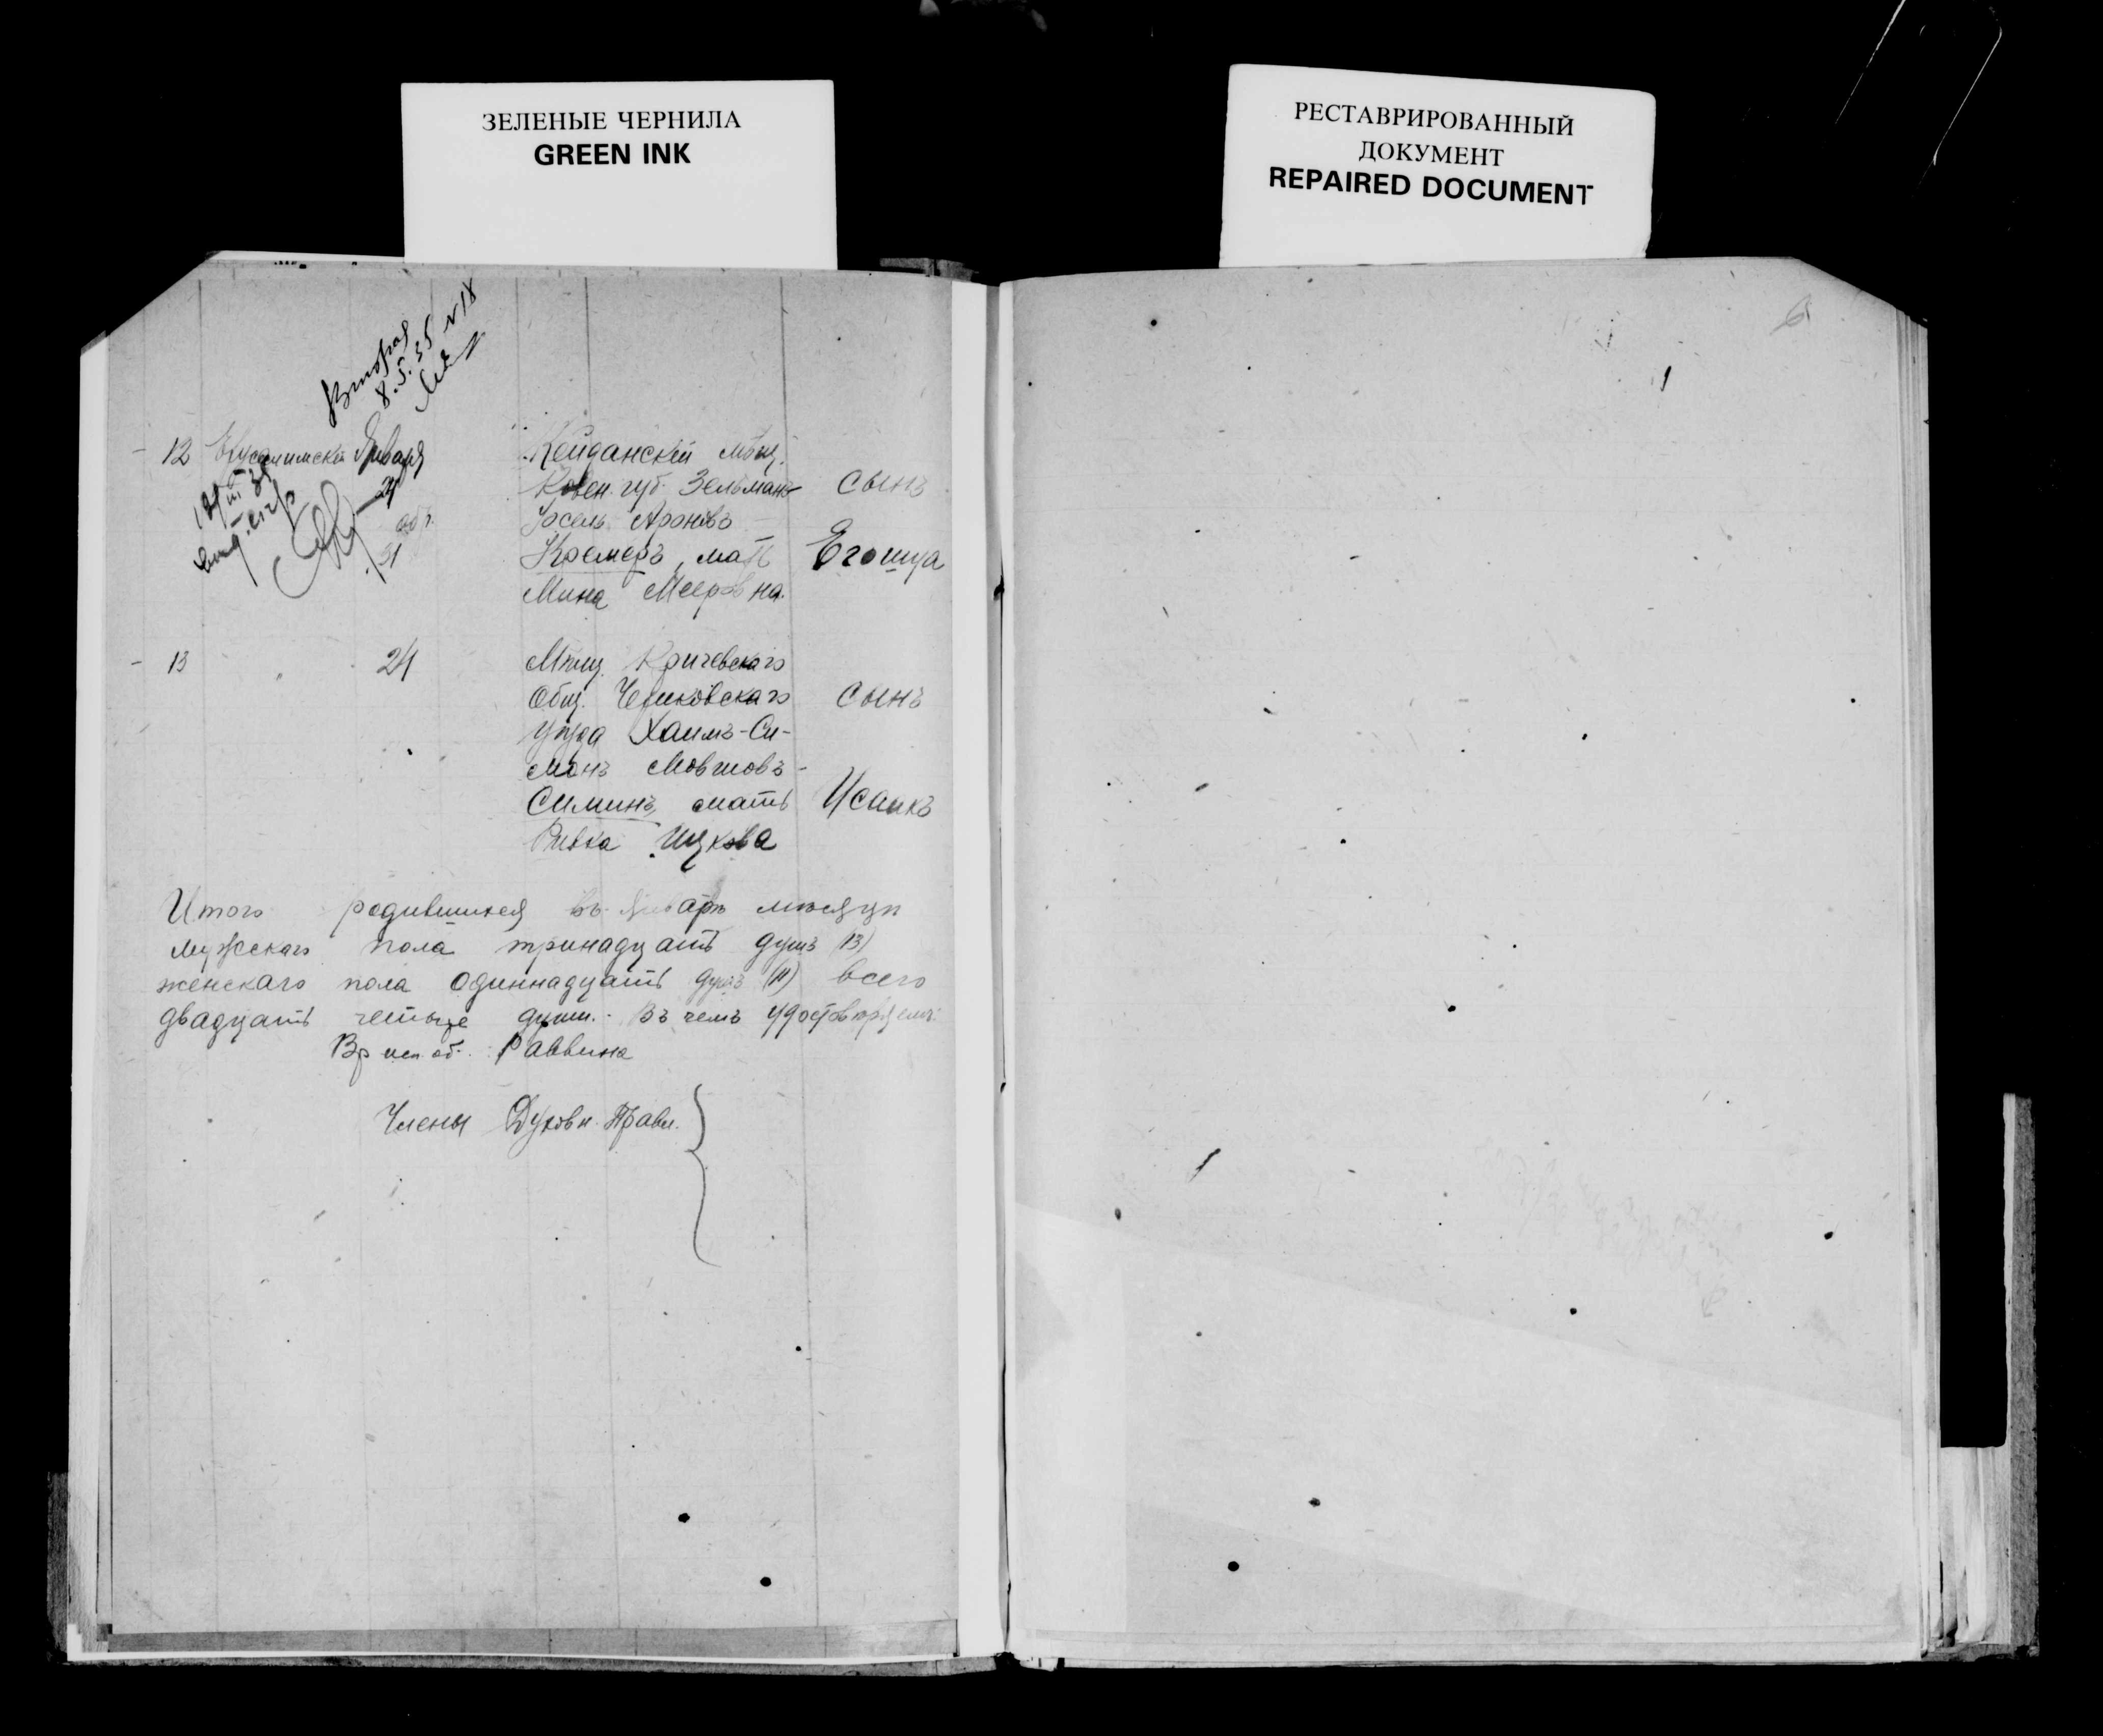 ЗЕЛЕНЫЕ ЧЕРНИЛА
GREEN INK
РЕСТАВРИРОВАННЫЙ
ДОКУМЕНТ
REPAIRED DOCUMENT
Вторая
8.5.35 N 18
12 Января Кейданскій мѣщ.
Ковен. губ. Зельманъ сынъ
Іосель Ароновъ
31 Кремеръ, мать Егошуа
Мина Мееровна.
13 " 24 Мѣщ. Кричевскаго
Общ. Чериковскаго сынъ
уѣзда Хаимъ-Си-
монъ Мовшовъ
Симинъ, мать Исаакъ
Ривка Ицкова
Итого родившихся въ Январѣ мѣсяцѣ
мужскаго пола тринадцать душъ (13)
женскаго пола одиннадцать душъ (11) всего
двадцать четыре души. Въ чемъ удостовѣряемъ:
Вр исп об. Раввина
Члены Духовн. Правл.
6